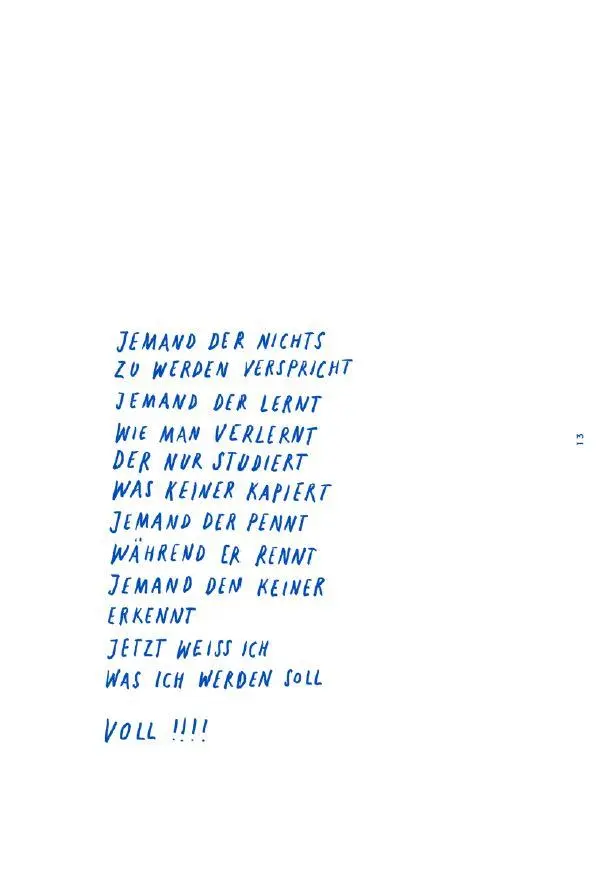 JEMAND DER NICHTS
ZU WERDEN VERSPRICHT
JEMAND DER LERNT
WIE MAN VERLERNT
DER NUR STUDIERT
WAS KEINER KAPIERT
JEMAND DER PENNT
WÄHREND ER RENNT
JEMAND DEN KEINER
ERKENNT
JETZT WEISS ICH
WAS ICH WERDEN SOLL
VOLL !!!!
13